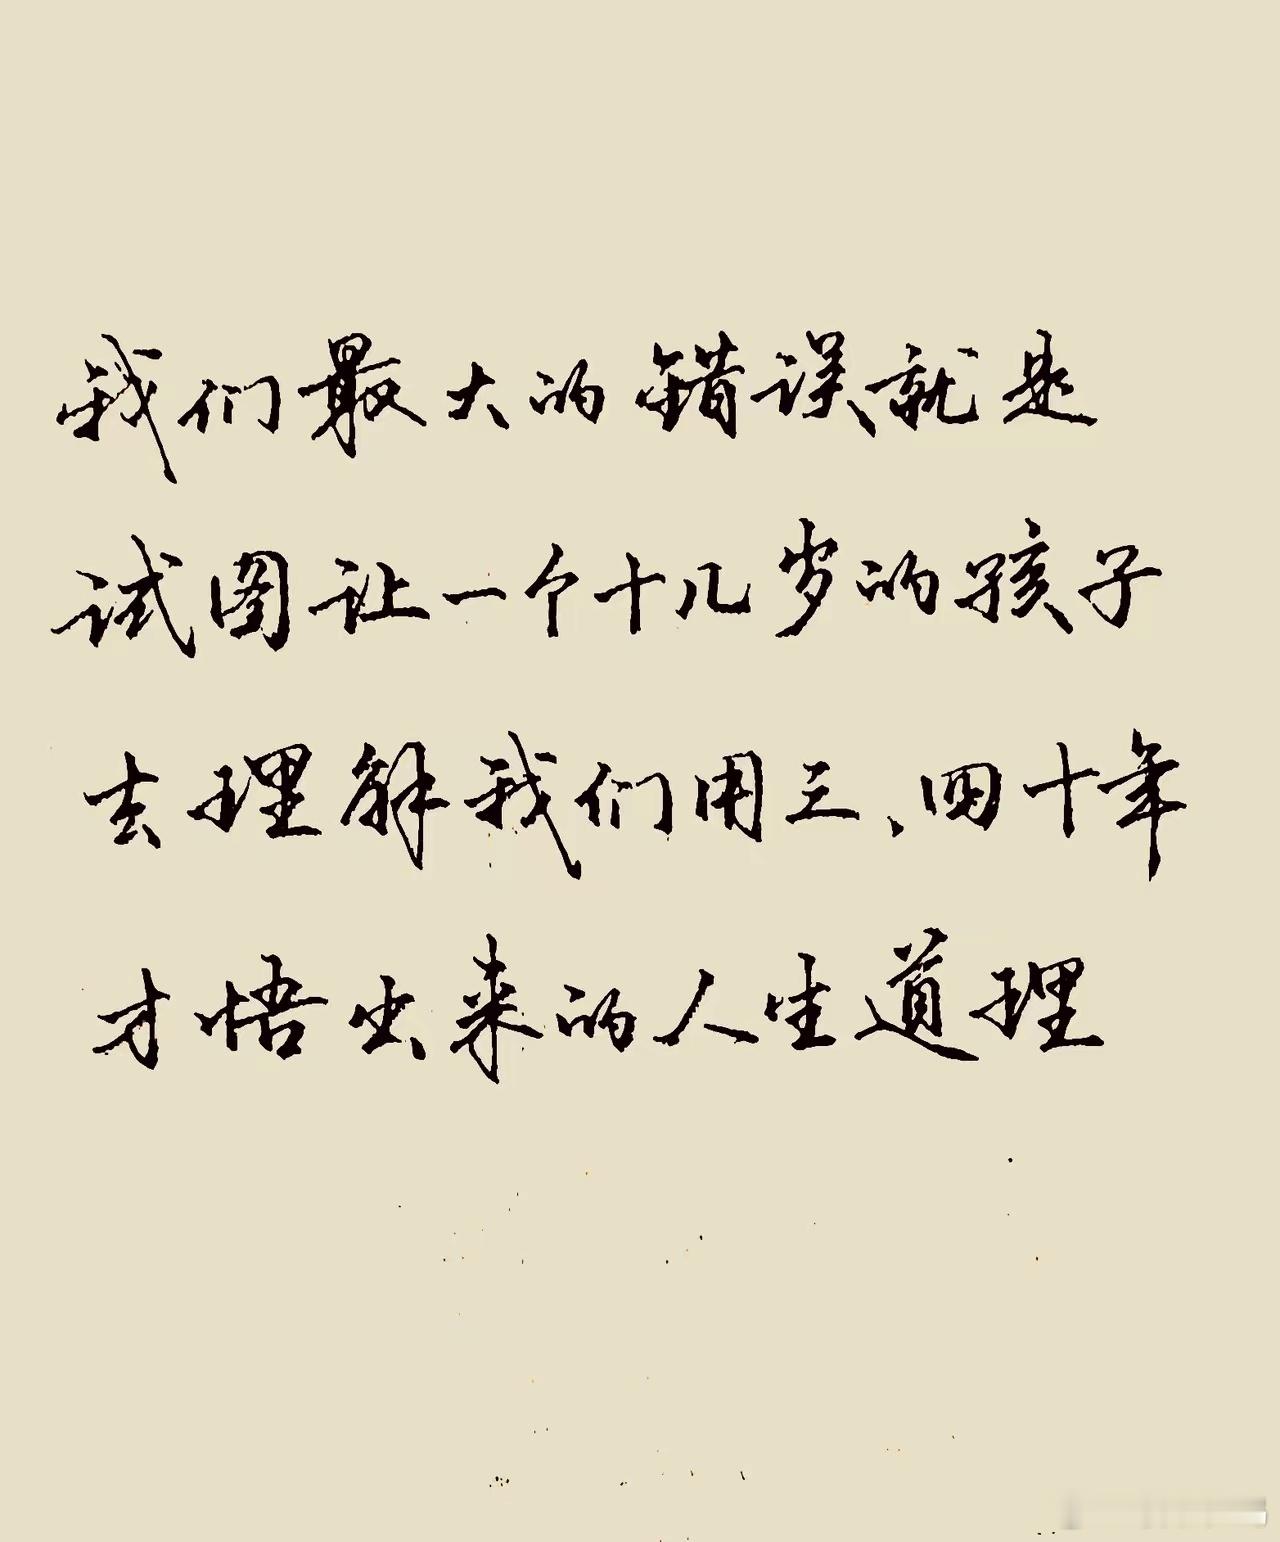 我们最大的错误就是
试图让一个十几岁的孩子
去理解我们用三、四十年
才悟出来的人生道理